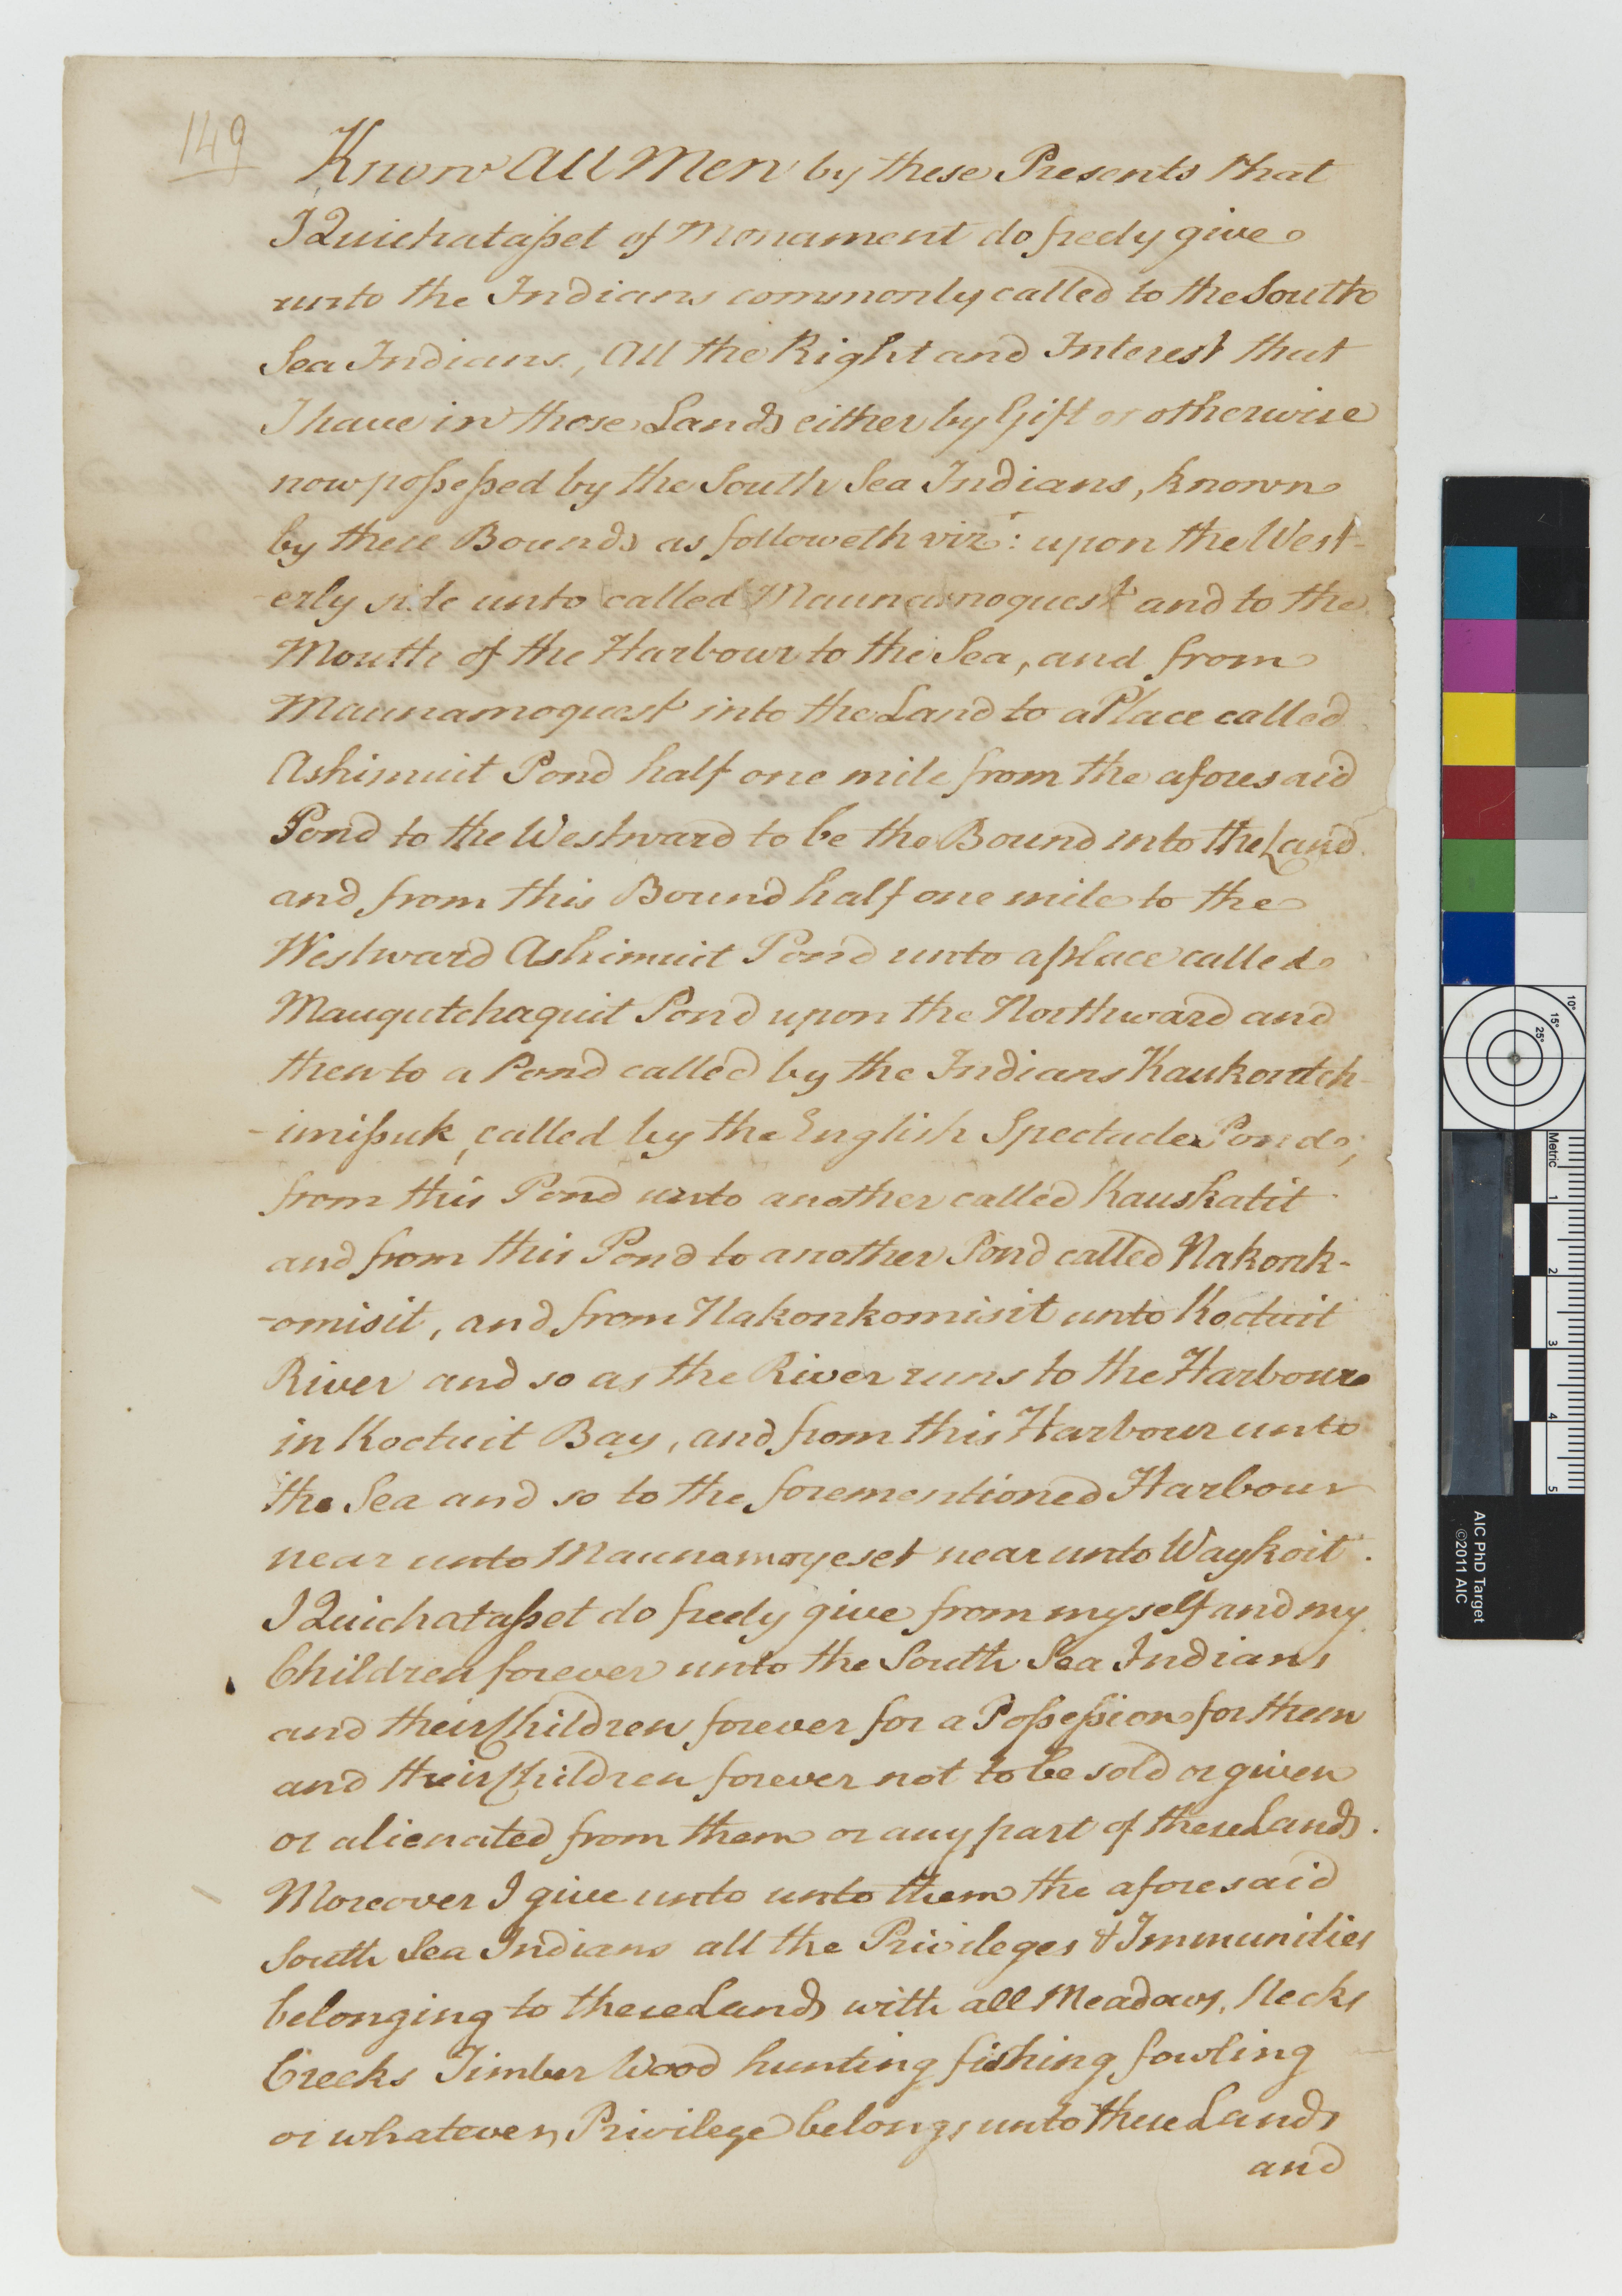 149
Know All Men by these Presents that
I Quichatasset of Monament do freely give
unto the Indians commonly called to the South
Sea Indians, All the Right and Interest that
I have in those Lands either by Gift or otherwise
now possessed by the South Sea Indians, known
by these Bounds as followeth viz.: upon the West-
-erly side unto called Maunamoquest and to the
Mouth of the Harbour to the Sea, and from
Maunamoquest into the Land to a Place called
Ashimuit Pond half one mile from the aforesaid
Pond to the Westward to be the Bound into the Land
and from this Bound half one mile to the
Westward Ashimuit Pond unto a place called
Mauqutchaquit Pond upon the Northward and
then to a Pond called by the Indians Kaukontch-
-imissuk, called by the English Spectacle Pond,
from this Pond unto another called Kauskatit
and from this Pond to another Pond called Nakonk-
-omisit, and from Nakonkomisit unto Koctuit
River and so as the River runs to the Harbour
in Koctuit Bay, and from this Harbour unto
the Sea and so to the forementioned Harbour
near unto Maunamoyeset near unto Waykoit.
I Quichatasset do freely give from myself and my
Children forever unto the South Sea Indians
and their Children forever for a Possession for them
and their Children forever not to be sold or given
or alienated from them or any part of these Lands.
Moreover I give unto unto them the aforesaid
South Sea Indians all the Privileges & Immunities
belonging to these Lands with all Meadows, Necks
Creeks Timber Wood hunting fishing fowling
or whatever Privilege belongs unto these Lands
and
10°
15°
25°
Metric
1
2
3
4
5
AIC PhD Target
©2011 AIC